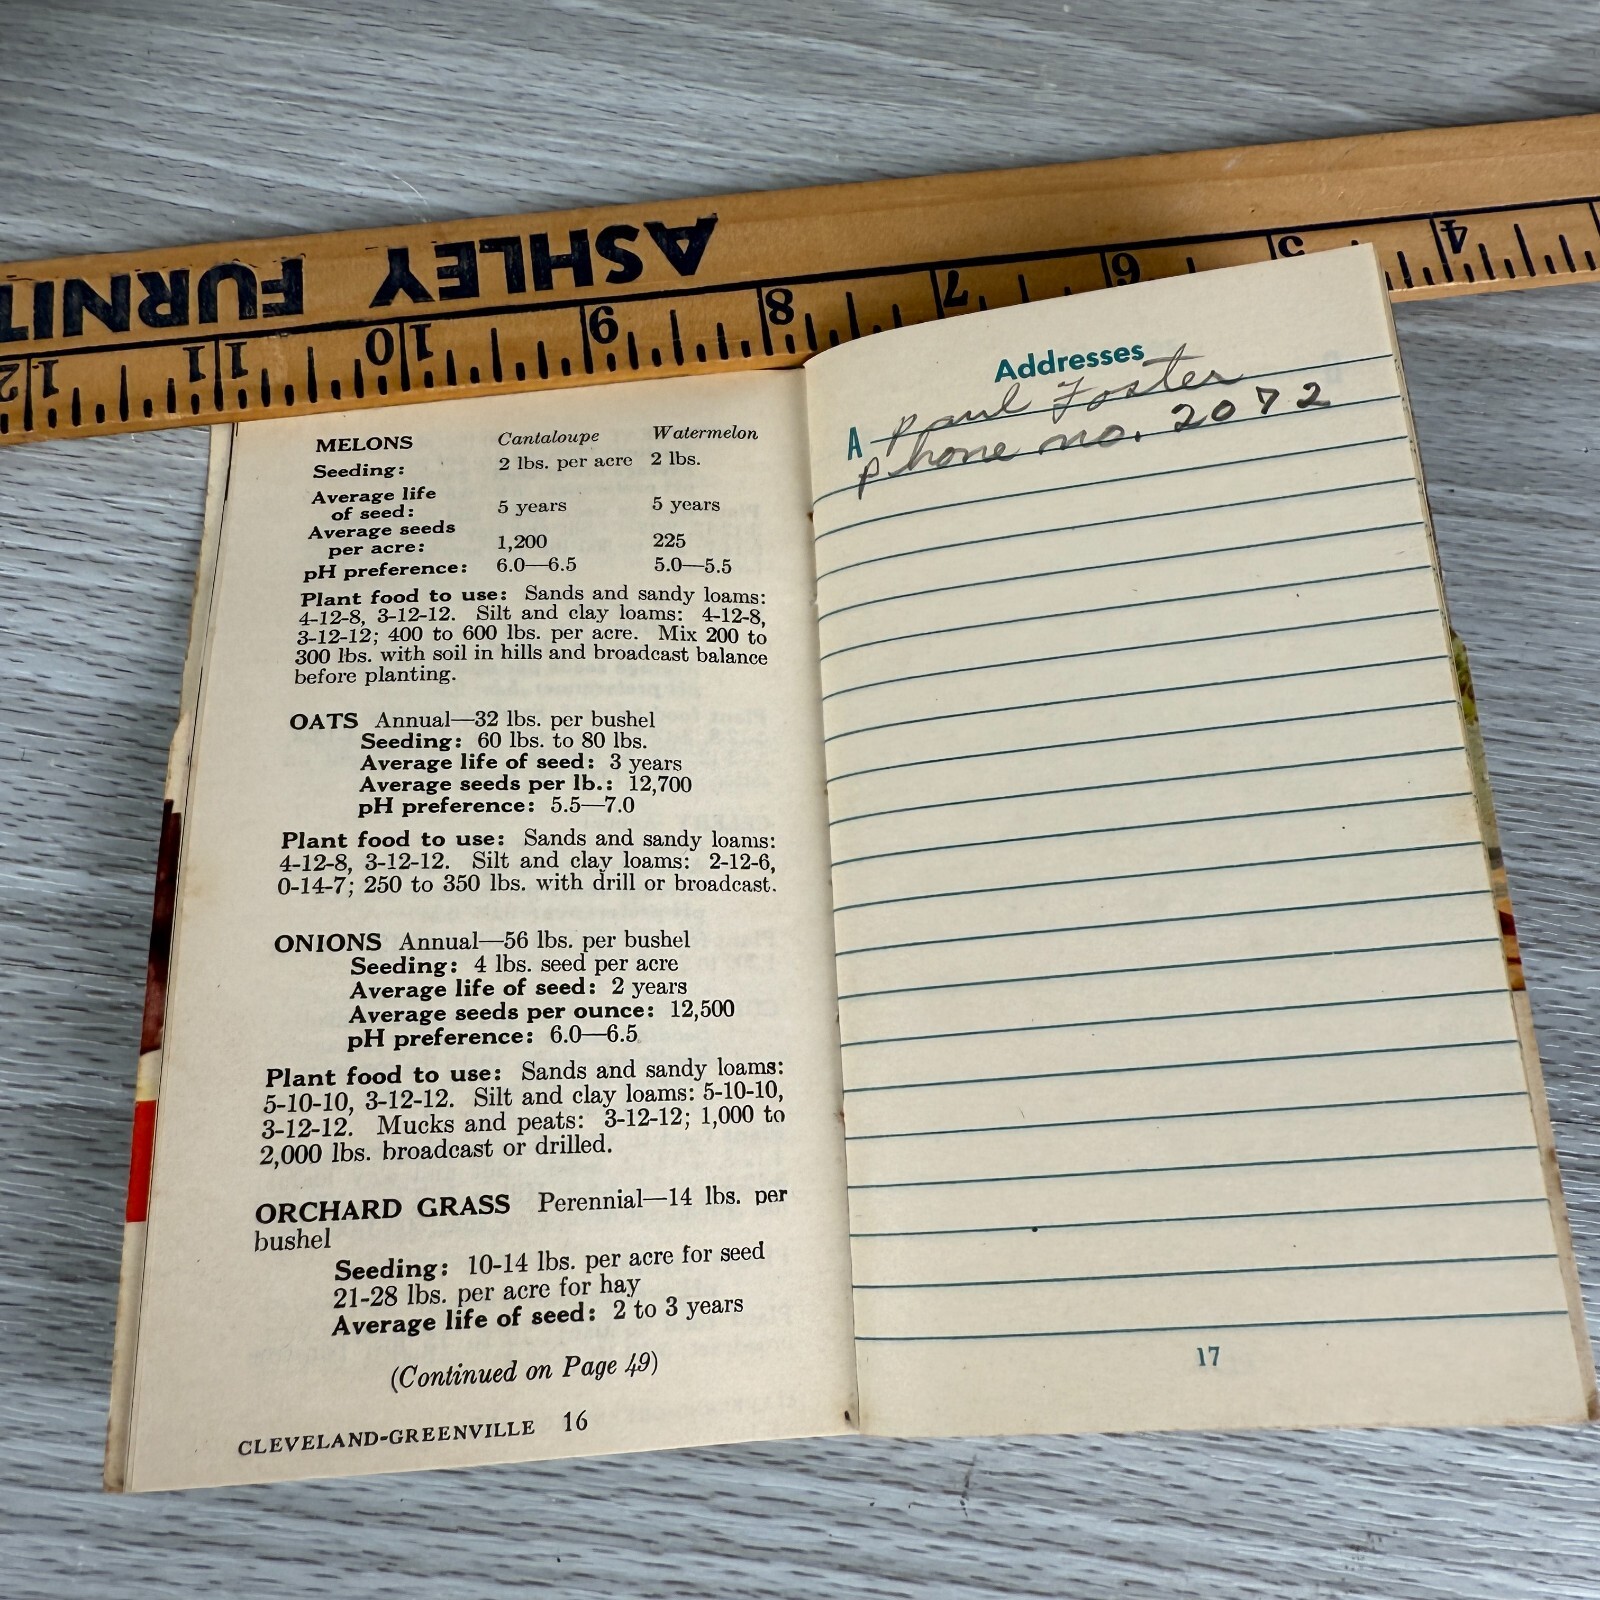 ASHLEY FURNIT
12 11 10 9 8 7 6 5 4
MELONS Cantaloupe Watermelon
Seeding: 2 lbs. per acre 2 lbs.
Average life
of seed: 5 years 5 years
Average seeds
per acre: 1,200 225
pH preference: 6.0—6.5 5.0—5.5
Plant food to use: Sands and sandy loams:
4-12-8, 3-12-12. Silt and clay loams: 4-12-8,
3-12-12; 400 to 600 lbs. per acre. Mix 200 to
300 lbs. with soil in hills and broadcast balance
before planting.
OATS Annual—32 lbs. per bushel
Seeding: 60 lbs. to 80 lbs.
Average life of seed: 3 years
Average seeds per lb.: 12,700
pH preference: 5.5—7.0
Plant food to use: Sands and sandy loams:
4-12-8, 3-12-12. Silt and clay loams: 2-12-6,
0-14-7; 250 to 350 lbs. with drill or broadcast.
ONIONS Annual—56 lbs. per bushel
Seeding: 4 lbs. seed per acre
Average life of seed: 2 years
Average seeds per ounce: 12,500
pH preference: 6.0—6.5
Plant food to use: Sands and sandy loams:
5-10-10, 3-12-12. Silt and clay loams: 5-10-10,
3-12-12. Mucks and peats: 3-12-12; 1,000 to
2,000 lbs. broadcast or drilled.
ORCHARD GRASS Perennial—14 lbs. per
bushel
Seeding: 10-14 lbs. per acre for seed
21-28 lbs. per acre for hay
Average life of seed: 2 to 3 years
(Continued on Page 49)
CLEVELAND-GREENVILLE 16
Addresses
A Paul Foster
Phone no. 2072
17